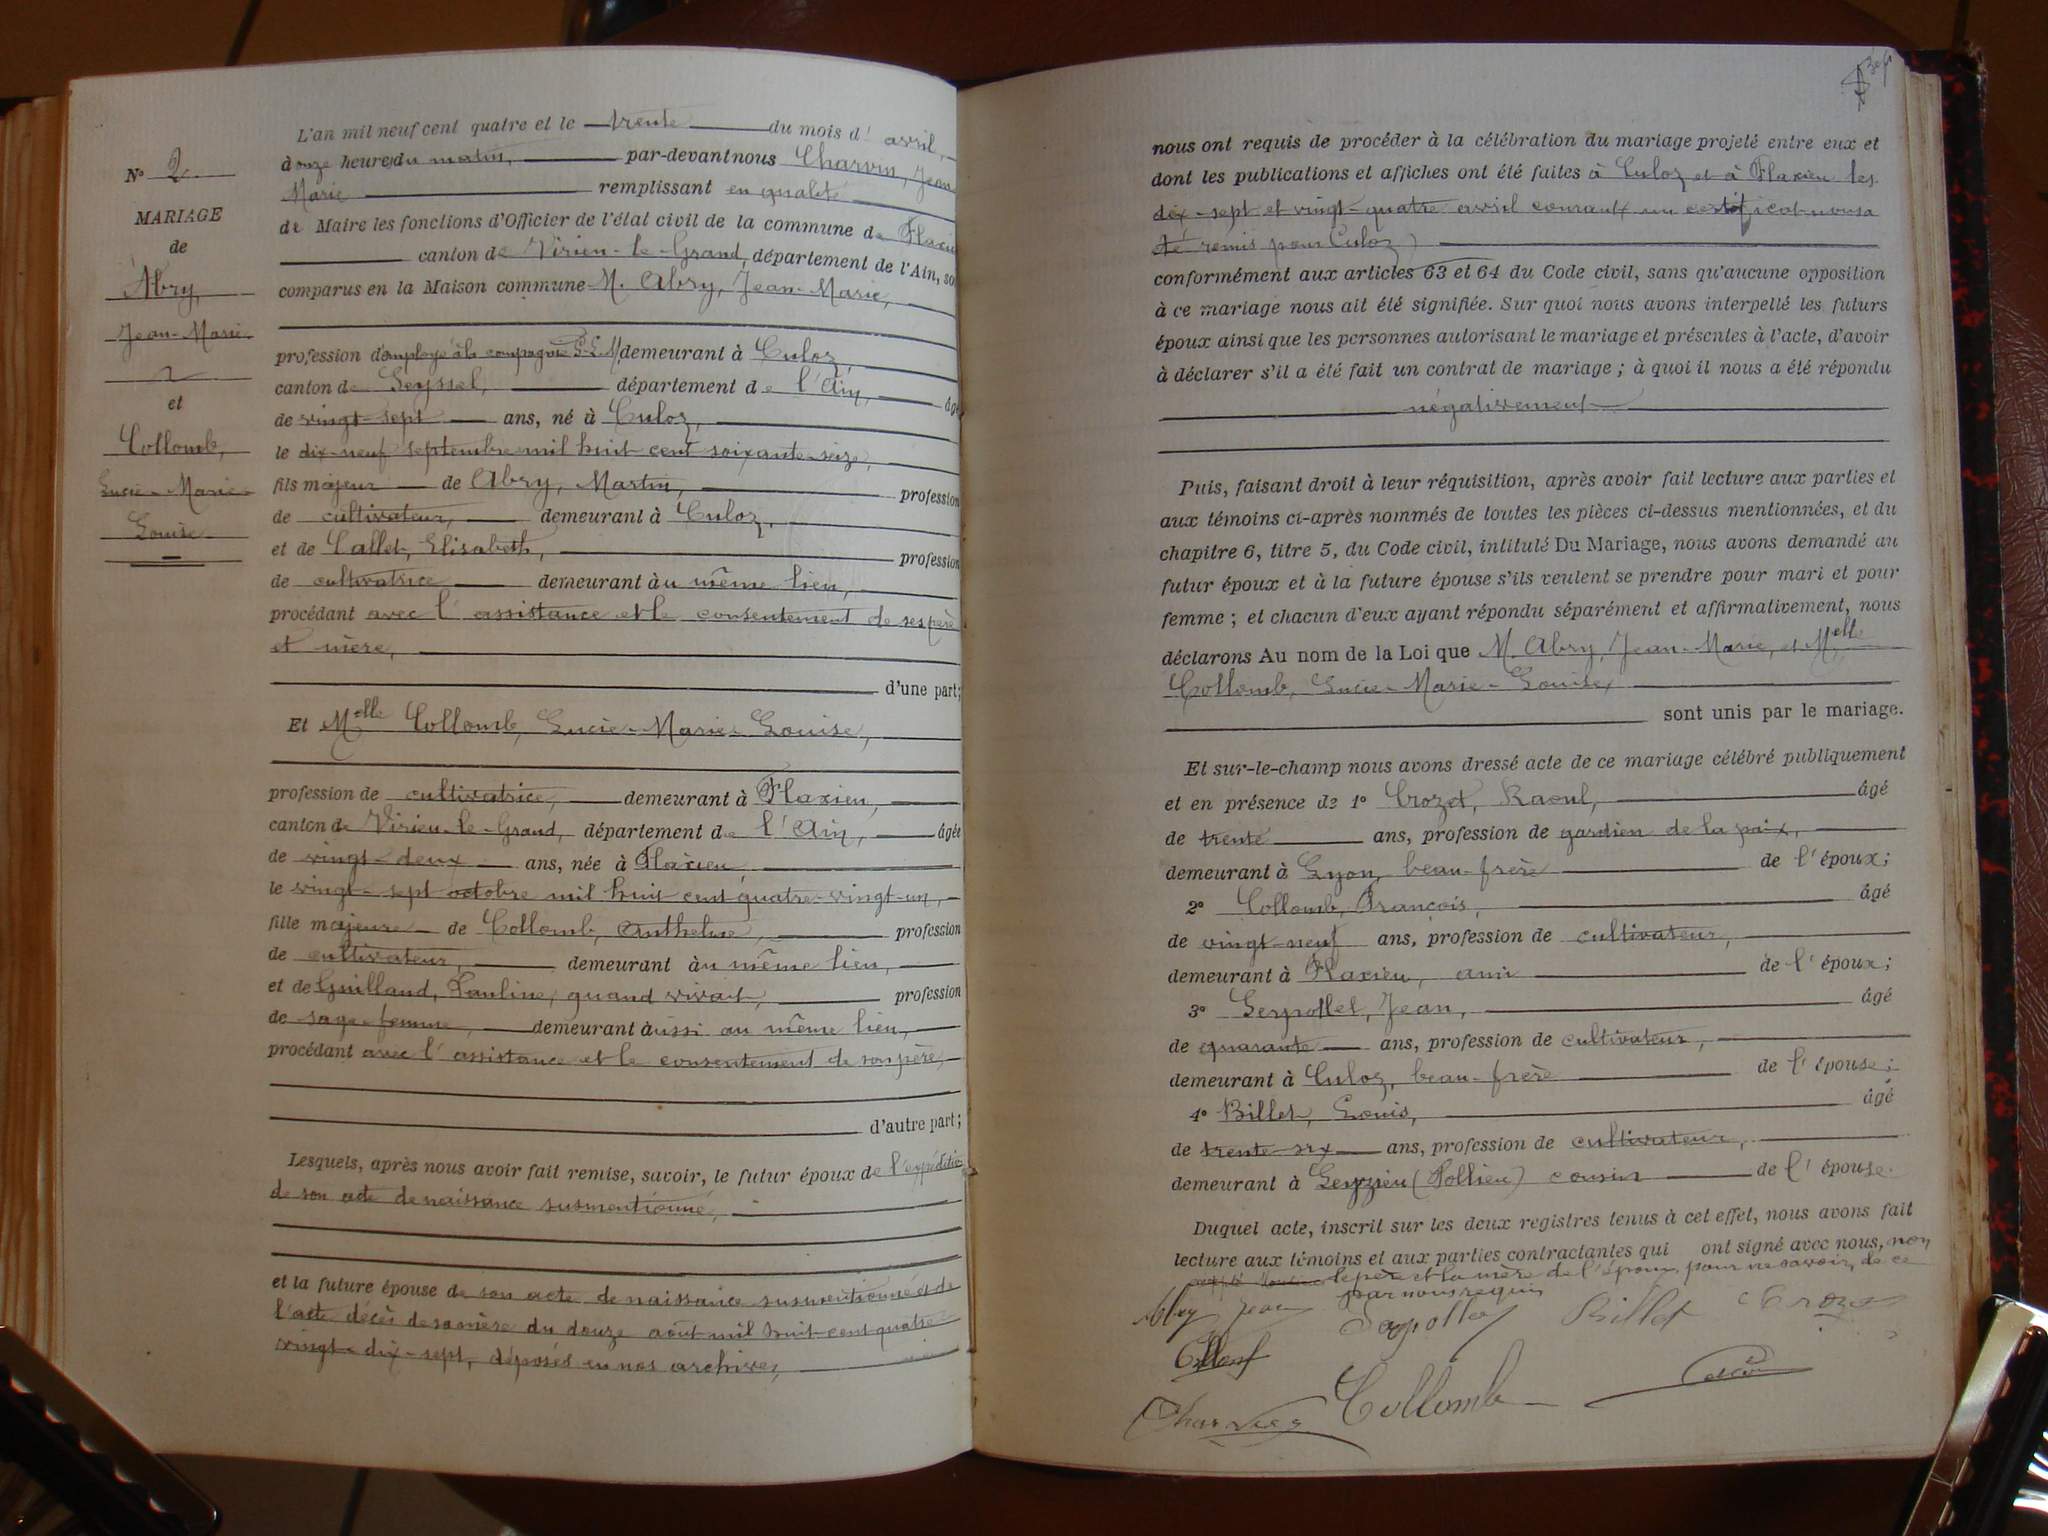 N° 2.
MARIAGE
de
Abry,
Jean-Marie
et
Collomb,
Lucie-Marie-
Louise
L'an mil neuf cent quatre et le trente du mois d' avril,
à onze heures du matin, par-devant nous Charvin, Jean
Marie remplissant en qualité
de Maire les fonctions d'Officier de l'état civil de la commune de Flaxieu
canton de Virieu-le-Grand, département de l'Ain, so
comparus en la Maison commune M. Abry, Jean-Marie,
profession d'employé à la compagnie P-L-M, demeurant à Culoz,
canton de Seyssel, département de l'Ain, âgé
de vingt-sept ans, né à Culoz,
le dix-neuf septembre mil huit cent soixante-seize,
fils majeur de Abry, Martin, profession
de cultivateur, demeurant à Culoz,
et de Callet, Elisabeth, profession
de cultivatrice demeurant à u même lieu,
procédant avec l'assistance et le consentement de ses père
et mère,
d'une part;
Et Melle Collomb, Lucie-Marie-Louise,
profession de cultivatrice, demeurant à Flaxieu,
canton de Virieu-le-Grand, département de l'Ain, âgée
de vingt-deux ans, née à Flaxieu
le vingt-sept octobre mil huit cent quatre-vingt-un,
fille majeure de Collomb, Anthelme, profession
de cultivateur, demeurant à u même lieu,
et de Guilland, Pauline, quand vivait, profession
de sage-femme, demeurant aussi au même lieu,
procédant avec l'assistance et le consentement de son père,
d'autre part;
Lesquels, après nous avoir fait remise, savoir, le futur époux de l'expéditio
de son acte de naissance susmentionné,
et la future épouse de son acte de naissance susmentionné et de
l'acte décès de sa mère du douze août mil huit-cent quatre
vingt-dix-sept, déposés en nos archives,
nous ont requis de procéder à la célébration du mariage projeté entre eux et
dont les publications et affiches ont été faites à Culoz et à Flaxieu les
dix-sept et vingt-quatre avril courant un certificat nous a
été remis pour Culoz)
conformément aux articles 63 et 64 du Code civil, sans qu'aucune opposition
à ce mariage nous ait été signifiée. Sur quoi nous avons interpellé les futurs
époux ainsi que les personnes autorisant le mariage et présentes à l'acte, d'avoir
à déclarer s'il a été fait un contrat de mariage ; à quoi il nous a été répondu
négativement
Puis, faisant droit à leur réquisition, après avoir fait lecture aux parties et
aux témoins ci-après nommés de toutes les pièces ci-dessus mentionnées, et du
chapitre 6, titre 5, du Code civil, intitulé Du Mariage, nous avons demandé au
futur époux et à la future épouse s'ils veulent se prendre pour mari et pour
femme ; et chacun d'eux ayant répondu séparément et affirmativement, nous
déclarons Au nom de la Loi que M. Abry, Jean-Marie, et Melle
Collomb, Lucie-Marie-Louise,
sont unis par le mariage.
Et sur-le-champ nous avons dressé acte de ce mariage célébré publiquement
et en présence de 1° Crozet, Raoul, âgé
de trente ans, profession de gardien de la paix,
demeurant à Lyon, beau-frère de l'époux;
2° Collomb, François, âgé
de vingt-neuf ans, profession de cultivateur,
demeurant à Flaxieu, ami de l'époux;
3° Jean, âgé
de quarante ans, profession de cultivateur,
demeurant à Culoz, beau-frère de l'épouse;
4° Billet, Louis, âgé
de trente-six ans, profession de cultivateur,
demeurant à Leyzieu (Pollieu) cousin de l'épouse.
Duquel acte, inscrit sur les deux registres tenus à cet effet, nous avons fait
lecture aux témoins et aux parties contractantes qui ont signé avec nous, non
le père et la mère de l'époux pour ne savoir, de ce
par nous requis
Abry Jean Billet Crozet
Collomb